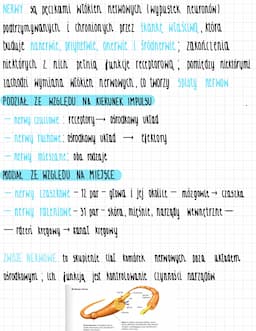 NERWY są pęczkami włókien nerwowych (wypustek neuronów)
podtrzymywanych i chronionych przez tkankę właściwą, która
buduje nanerwie, onerwie i śródnerwie; zakończenia
niektórych z nich pełnią funkcje receptorową; pomiędzy niektórymi
zachodzi wymiana włókien nerwowych, co tworzy sploty nerwów
PODZIAŁ ZE WZGLĘDU NA KIERUNEK IMPULSU
- nerwy czuciowe: receptory → ośrodkowy układ
- nerwy ruchowe: ośrodkowy układ → efektory
- nerwy mieszane: oba rodzaje
PODZIAŁ ZE WZGLĘDU NA MIEJSCE
- nerwy czaszkowe - 12 par - głowa i jej okolice - mózgowie → czaszka
- nerwy rdzeniowe - 31 par - skóra, mięśnie, narządy wewnętrzne -
- rdzeń kręgowy → kanał kręgowy
ZWOJE NERWOWE to skupienie ciał komórek nerwowych poza układem
ośrodkowym; ich funkcją jest kontrolowanie czynności narządów